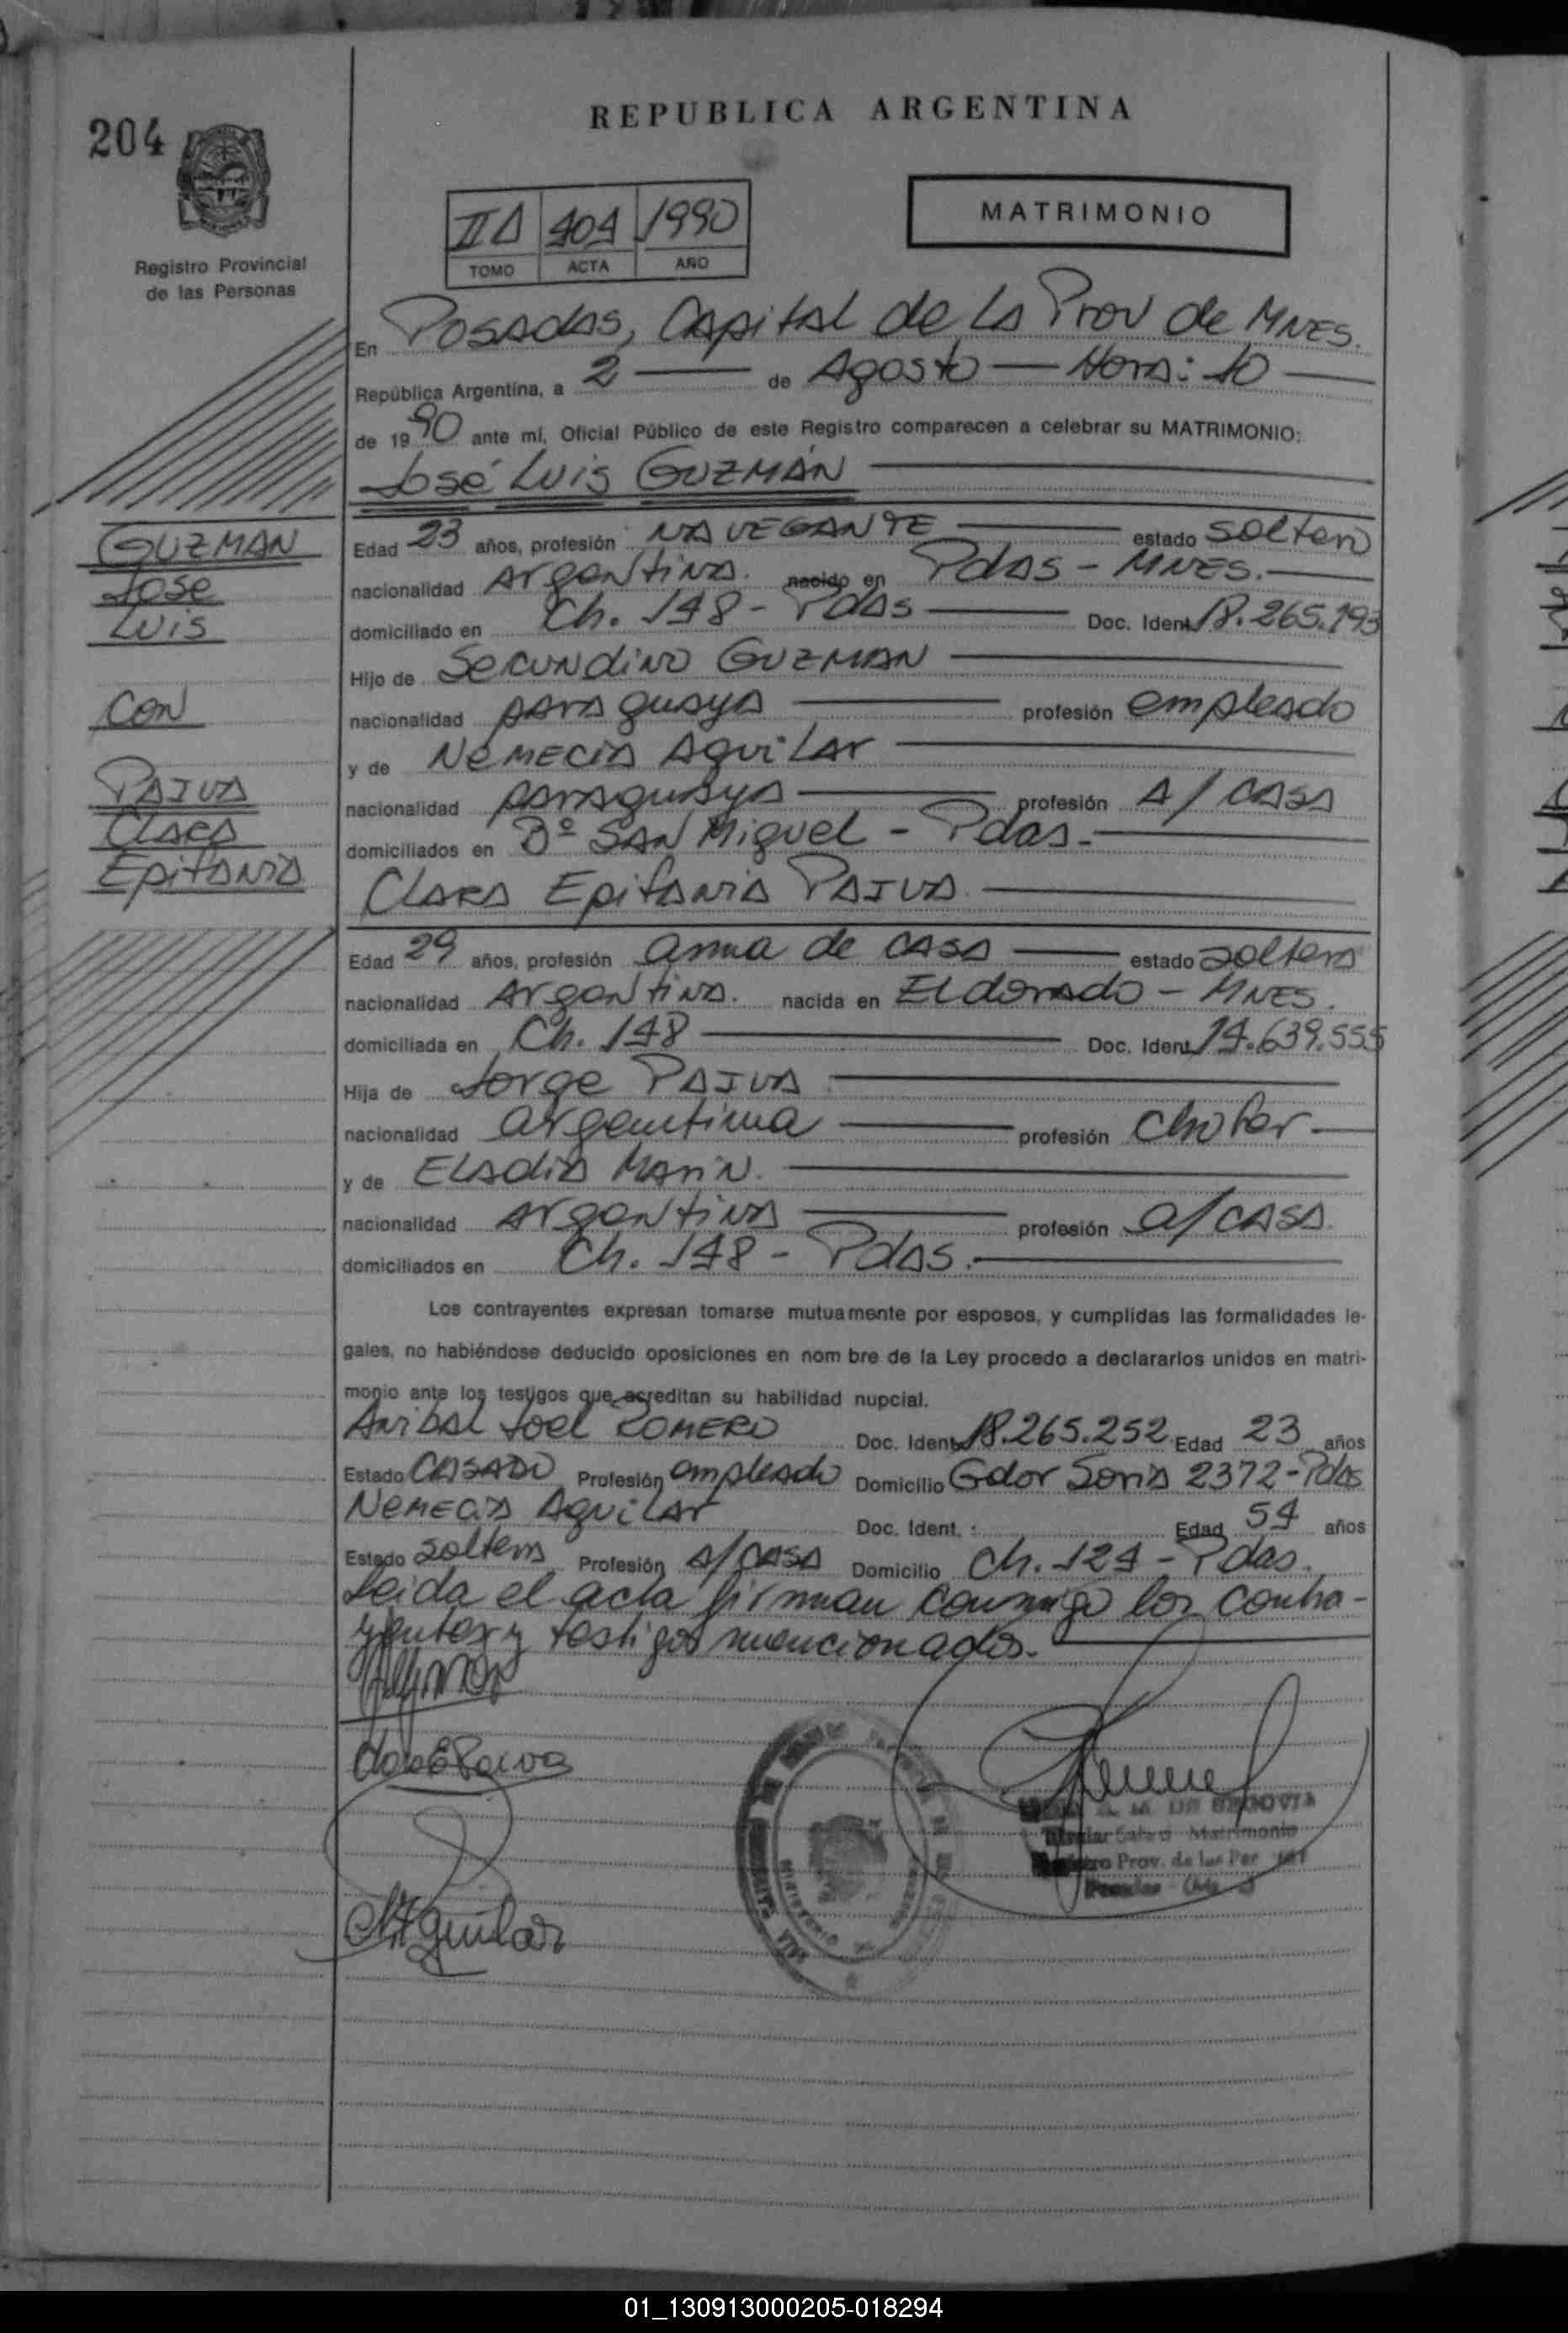 REPUBLICA ARGENTINA
204
IIA 404 1990
TOMO ACTA AÑO
MATRIMONIO
Registro Provincial
de las Personas
En Posadas, Capital de la Prov de Mnes.
República Argentina, a 2 de Agosto Hora: 10
de 1990 ante mí, Oficial Público de este Registro comparecen a celebrar su MATRIMONIO:
José Luis GUZMÁN
GUZMAN
Jose
Luis
con
PAIVA
Clara
Epifania
Edad 23 años, profesión NAVEGANTE estado soltero
nacionalidad Argentina. nacido en Pdas - Mnes.
domiciliado en Ch. 148 - Pdas Doc. Ident. 18.265.193
Hijo de Secundino GUZMAN
nacionalidad paraguaya profesión empleado
y de Nemecia Aguilar
nacionalidad paraguaya profesión A/ casa
domiciliados en Bº San Miguel - Pdas.
Clara Epifania PAIVA
Edad 29 años, profesión ama de casa estado soltera
nacionalidad Argentina. nacida en Eldorado - Mnes.
domiciliada en Ch. 148 Doc. Ident. 14.639.555
Hija de Jorge PAIVA
nacionalidad argentina profesión chofer
y de Eladia Marin.
nacionalidad Argentina profesión a/casa.
domiciliados en Ch. 148 - Pdas.
Los contrayentes expresan tomarse mutuamente por esposos, y cumplidas las formalidades le-
gales, no habiéndose deducido oposiciones en nom bre de la Ley procedo a declararlos unidos en matri-
monio ante los testigos que acreditan su habilidad nupcial.
Anibal Joel ROMERO Doc. Ident. 18.265.252 Edad 23 años
Estado CASADO Profesión empleado Domicilio Gdor Soria 2372 - Pdas
Nemecia Aguilar Doc. Ident. : Edad 54 años
Estado soltera Profesión A/casa Domicilio Ch. 124 - Pdas.
Leida el acta firman conmigo los contra-
yentes y testigos mencionados.
NAguilar
DE SEGOVIA
Matrimonio
Prov. de las Per
01_130913000205-018294